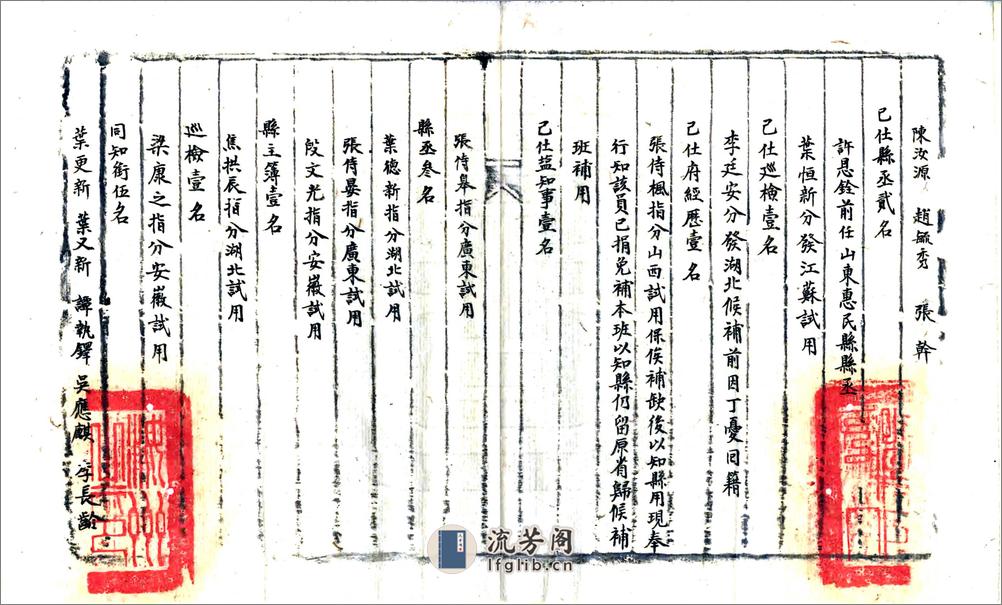 陳汝源 趙毓秀 張幹
已仕縣丞貳名
許恩銓前任山東惠民縣縣丞
葉恒新分發江蘇試用
已仕巡檢壹名
李廷安分發湖北候補前因丁憂回籍
已仕府經歷壹名
張侍楓指分山西試用保俟補缺後以知縣用現奉
行知該員已捐免補本班以知縣仍留原省歸候補
班補用
已仕盐知事壹名
張侍皋指分廣東試用
縣丞叁名
葉德新指分湖北試用
張侍晏指分廣東試用
殷文光指分安徽試用
縣主簿壹名
焦拱辰指分湖北試用
巡檢壹名
梁康之指分安徽試用
同知銜伍名
葉更新 葉又新 譚執鐸 吳應麒 李長齡
流芳阁
lfglib.cn